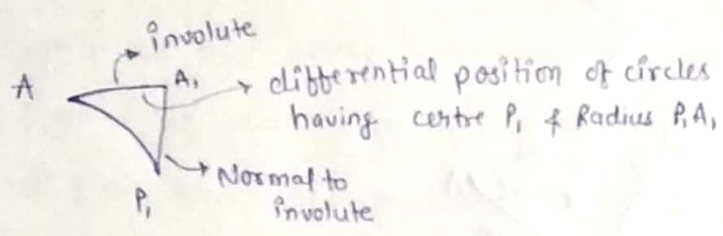 involute
A
A₁
differential position of circles
having certre P₁ & Radius P₁A₁
Normal to
involute
P₁